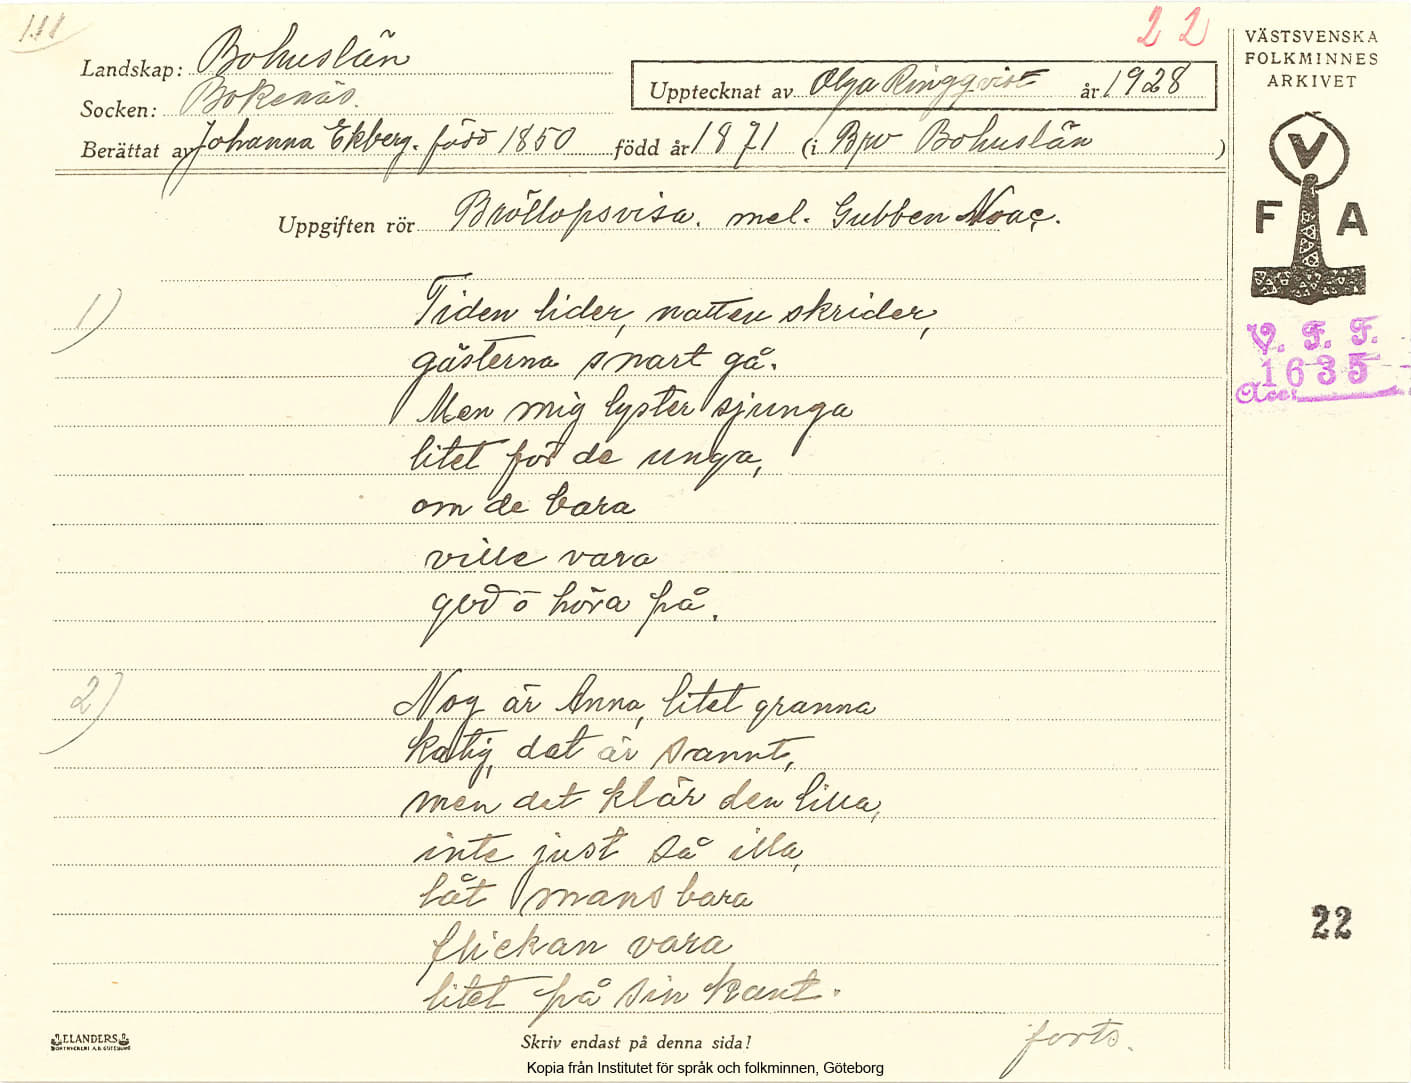 111
22
Landskap: Bohuslän
Socken: Bokenäs.
Upptecknat av Olga Ringqvist år 1928
Berättat av Johanna Ekberg. född 1850 född år 1871 (i Bro Bohuslän )
Uppgiften rör Bröllopsvisa. mel. Gubben Noac.
VÄSTSVENSKA
FOLKMINNES
ARKIVET
V
F A
V. F. F.
1635
Acc:
1) Tiden lider, natten skrider,
gästerna snart gå.
Men mig lyster sjunga
litet för de unga,
om de bara
ville vara
god ö höra på.
2) Nog är Anna, litet granna
katig, det är sannt,
men det klär den lilla,
inte just så illa,
låt mans bara
flickan vara
litet på sin kant.
22
forts.
ELANDERS
Skriv endast på denna sida!
Kopia från Institutet för språk och folkminnen, Göteborg